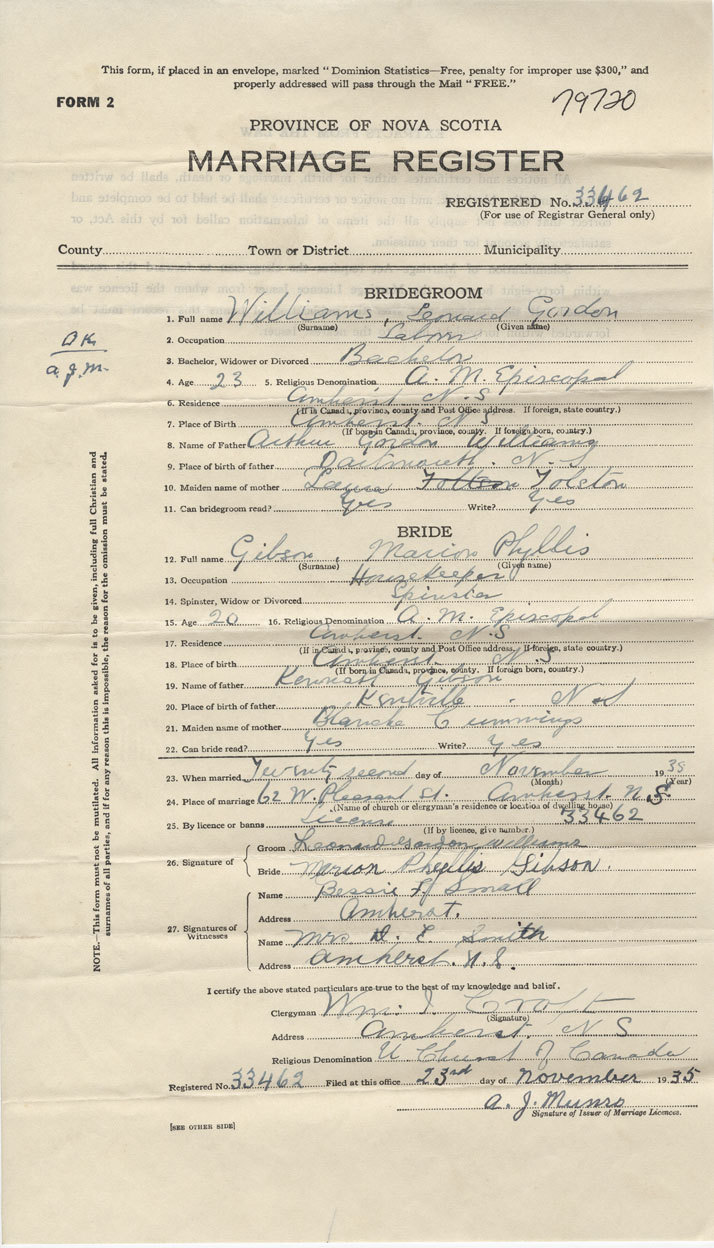 This form, if placed in an envelope, marked "Dominion Statistics—Free, penalty for improper use $300," and
properly addressed will pass through the Mail "FREE."
FORM 2
79720
PROVINCE OF NOVA SCOTIA
MARRIAGE REGISTER
REGISTERED No. 33462
(For use of Registrar General only)
County Town or District Municipality
BRIDEGROOM
OK
a.J.m.
1. Full name Williams, Leonard Gordon
(Surname) (Given name)
2. Occupation Labour
3. Bachelor, Widower or Divorced Bachelor
4. Age 23 5. Religious Denomination A. M. Episcopal
6. Residence Amherst N.S
(If in Canada, province, county and Post Office address. If foreign, state country.)
7. Place of Birth Amherst. N.S
(If born in Canada, province, county. If foreign born, country.)
8. Name of Father Arthur Gordon Williams
9. Place of birth of father Dartmouth. N. S
10. Maiden name of mother Tolston
11. Can bridegroom read? Yes Write? Yes
BRIDE
12. Full name Gibson, Marion Phyllis
(Surname) (Given name)
13. Occupation Housekeeper
14. Spinster, Widow or Divorced Spinster
15. Age 20 16. Religious Denomination A. M. Episcopal
17. Residence Amherst. N.S
(If in Canada, province, county and Post Office address. If foreign, state country.)
18. Place of birth Amherst N.S
(If born in Canada, province, county. If foreign born, country.)
19. Name of father Gibson
20. Place of birth of father Kentville. N S
21. Maiden name of mother Blanche Cummings
22. Can bride read? Yes Write? Yes
23. When married Twenty second day of November 1935
(Month) (Year)
24. Place of marriage 62 W. Pleasant St. Amherst N.S.
(Name of church or clergyman's residence or location of dwelling house)
25. By licence or banns License 33462
(If by licence, give number.)
26. Signature of Groom Leonard Gordon Williams
Bride Marion Phyllis Gibson.
27. Signatures of Witnesses Name Bessie Small
Address Amherst.
Name Mrs D. E. Smith
Address Amherst. N.S.
NOTE.—This form must not be mutilated. All information asked for is to be given, including full Christian and
surnames of all parties, and if for any reason this is impossible, the reason for the omission must be stated.
I certify the above stated particulars are true to the best of my knowledge and belief.
Clergyman Wm. I. Croft
(Signature)
Address Amherst. N S
Religious Denomination U Church of Canada
Registered No. 33462 Filed at this office 23rd day of November 1935
A. J. Munro
Signature of Issuer of Marriage Licences.
[SEE OTHER SIDE]